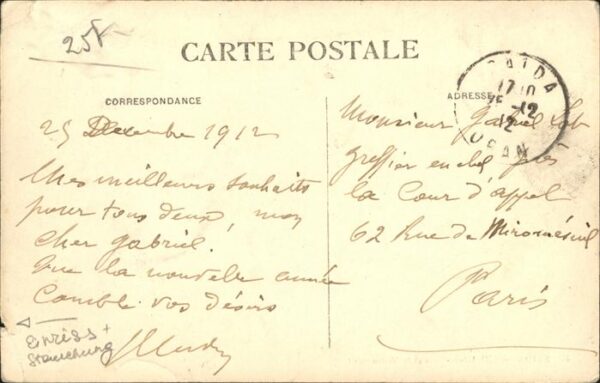 25F
CARTE POSTALE
CORRESPONDANCE
ADRESSE
SAIDA
17 10
25 -12
12
ORAN
25 Décembre 1912
Mes meilleurs souhaits
pour tous deux, mon
cher Gabriel.
Que la nouvelle année
Comble vos désirs
Monsieur Gabriel
greffier en chef près
la Cour d'appel
62 Rue de Miromésnil
Paris